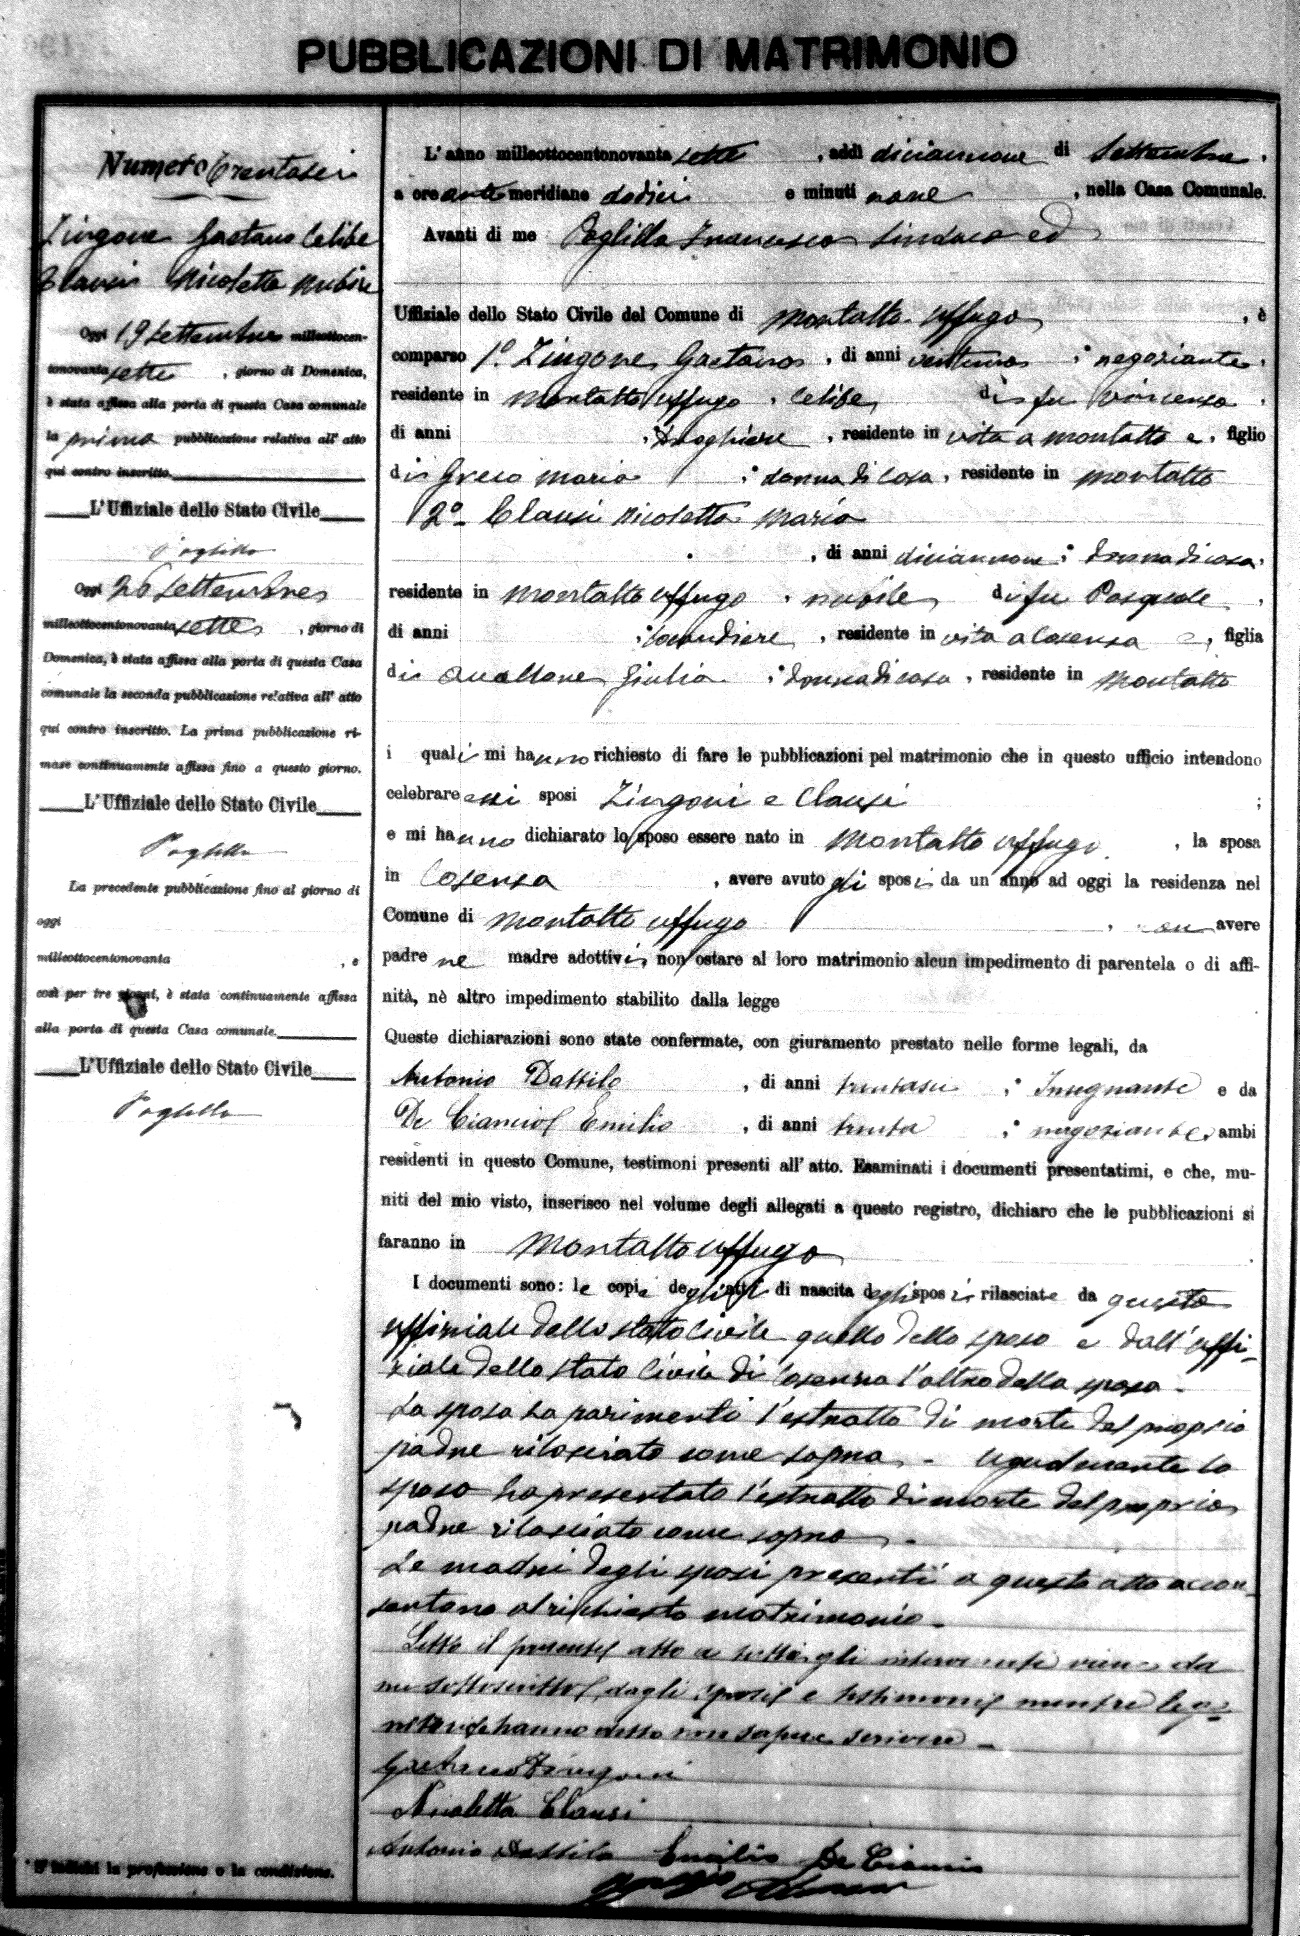 PUBBLICAZIONI DI MATRIMONIO
Numero Trentasei
Zingone Gaetano Celibe
Clausi Nicoletta Nubile
Oggi 19 Settembre milleottocen-
tonovanta sette, giorno di Domenica,
è stata affissa alla porta di questa Casa comunale
la prima pubblicazione relativa all' atto
qui contro inscritto.
L'Uffiziale dello Stato Civile
Paglilla
Oggi 26 Settembre
milleottocentonovanta sette, giorno di
Domenica, è stata affissa alla porta di questa Casa
comunale la seconda pubblicazione relativa all' atto
qui contro inscritto. La prima pubblicazione ri-
mase continuamente affissa fino a questo giorno.
L'Uffiziale dello Stato Civile
Paglilla
La precedente pubblicazione fino al giorno di
oggi
milleottocentonovanta , e
così per tre giorni, è stata continuamente affissa
alla porta di questa Casa comunale.
L'Uffiziale dello Stato Civile
Paglilla
* Si indichi la professione o la condizione.
L'anno milleottocentonovanta sette, addì diciannove di Settembre,
a ore anti meridiane dodici e minuti nove, nella Casa Comunale.
Avanti di me Paglilla Francesco Sindaco ed
Uffiziale dello Stato Civile del Comune di Montalto Uffugo, è
comparso 1º. Zingone Gaetano, di anni ventuno, negoziante,
residente in Montalto Uffugo, Celibe, di fu Vincenzo,
di anni , residente in vita a Montalto e, figlio
di Greco Maria, donna di casa, residente in Montalto
2º Clausi Nicoletta Maria
, di anni diciannove, donna di casa,
residente in Montalto Uffugo, nubile, di fu Pasquale,
di anni locandiere, residente in vita a Cosenza e, figlia
di Avallone Giulia, donna di casa, residente in Montalto
i quali mi hanno richiesto di fare le pubblicazioni pel matrimonio che in questo ufficio intendono
celebrare essi sposi Zingoni e Clausi;
e mi hanno dichiarato lo sposo essere nato in Montalto Uffugo, la sposa
in Cosenza, avere avuto gli sposi da un anno ad oggi la residenza nel
Comune di Montalto Uffugo, non avere
padre ne madre adottivi non ostare al loro matrimonio alcun impedimento di parentela o di affi-
nità, nè altro impedimento stabilito dalla legge
Queste dichiarazioni sono state confermate, con giuramento prestato nelle forme legali, da
Antonio Dattilo, di anni trentasei, Insegnante e da
De Cianni Emilio, di anni trenta, negoziante, ambi
residenti in questo Comune, testimoni presenti all' atto. Esaminati i documenti presentatimi, e che, mu-
niti del mio visto, inserisco nel volume degli allegati a questo registro, dichiaro che le pubblicazioni si
faranno in Montalto Uffugo
I documenti sono: le copie degli atti di nascita degli sposi rilasciate da questo
uffiziale dello stato Civile quello dello sposo e dall'uffi-
ziale dello stato Civile di Cosenza l'altro della sposa -
La sposa ha parimenti l'estratto di morte del proprio
padre rilasciato come sopra - Ugualmente lo
sposo ha presentato l'estratto di morte del proprio
padre rilasciato come sopra -
Le madri degli sposi presenti a questo atto accon-
sentono al richiesto matrimonio -
Letto il presente atto a tutti gli intervenuti viene da
me sottoscritto, dagli sposi e testimoni mentre le
hanno detto non sapere scrivere -
Gaetano Zingoni
Nicoletta Clausi
Antonio Dattilo Emilio De Cianni